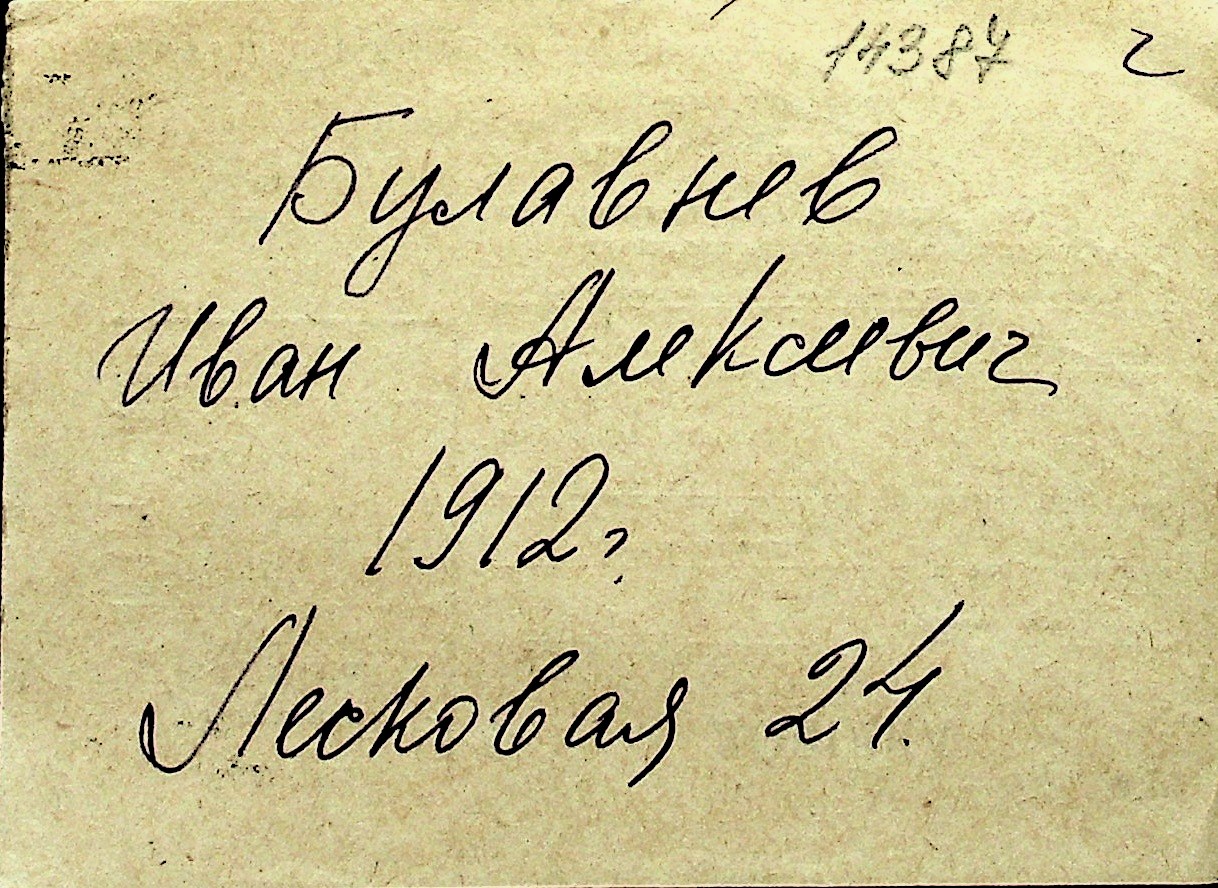 14387 г
Булавнев
Иван Алексеевич
1912г.
Лесковая 24.